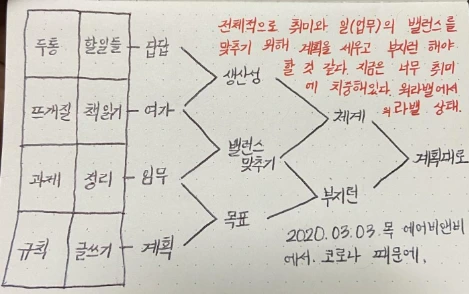 전체적으로 취미와 일(업무)의 밸런스를
맞추기 위해 계획을 세우고 부지런 해야
할 것 같다. 지금은 너무 취미
에 치중해있다. 워라밸에서
의 라밸 상태.
두통 할일들 답답
뜨개질 책읽기 여가
과제 정리 임무
규칙 글쓰기 계획
생산성
밸런스
맞추기
목표
체계
부지런
계획대로
2020.03.03. 목 에어비앤비
에서. 코로나 때문에,